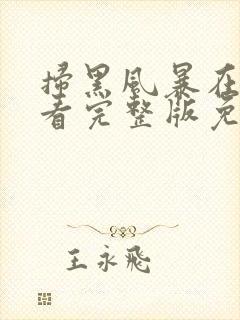 掃黑風暴在
看完整版免
王永飛